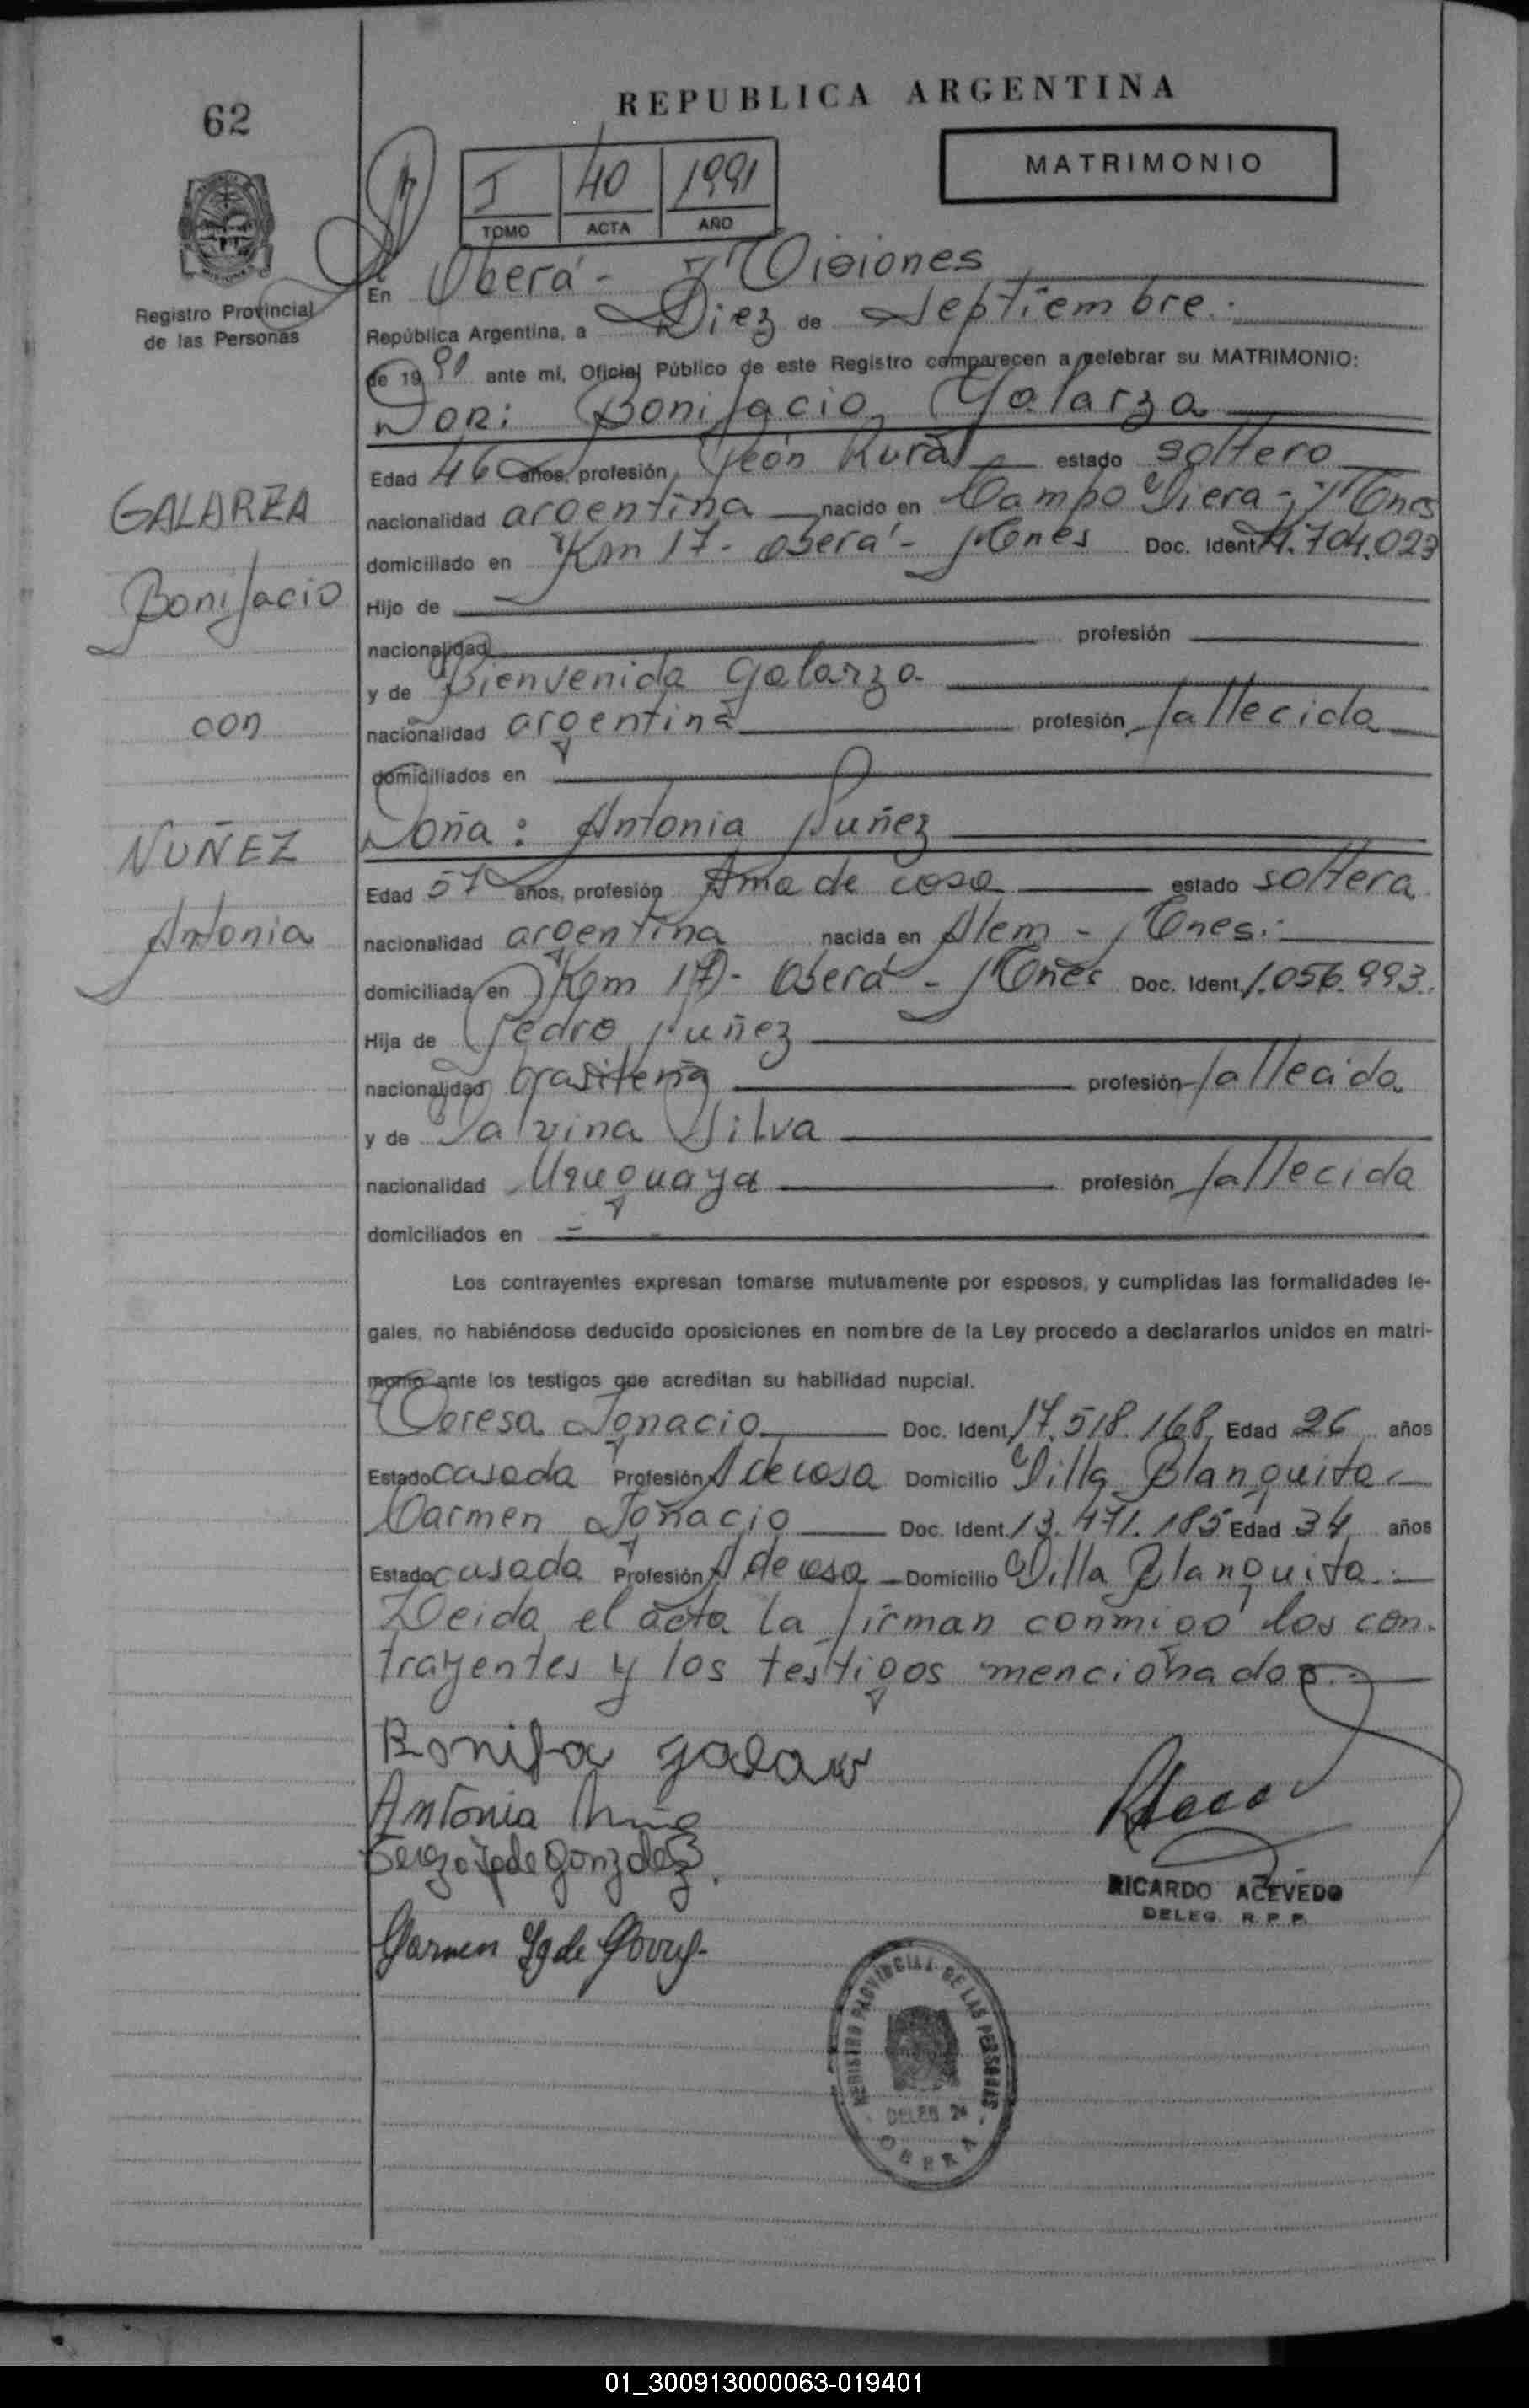 62
REPUBLICA ARGENTINA
MATRIMONIO
I 40 1991
TOMO ACTA AÑO
Registro Provincial
de las Personas
En Oberá - Misiones
República Argentina, a Diez de Septiembre.
de 1991 ante mí, Oficial Público de este Registro comparecen a celebrar su MATRIMONIO:
Don: Bonifacio Galarza
Edad 46 años, profesión Peón Rural estado soltero
nacionalidad argentina nacido en Campo Viera - Mnes
domiciliado en Km 17 - Oberá - Mnes Doc. Ident. 704.023
Hijo de
nacionalidad profesión
y de Bienvenida Galarza
nacionalidad argentina profesión fallecida
domiciliados en
GALARZA
Bonifacio
con
NUÑEZ
Antonia
Doña: Antonia Nuñez
Edad 57 años, profesión Ama de casa estado soltera
nacionalidad argentina nacida en Alem - Mnes.
domiciliada en Km 17 - Oberá - Mnes Doc. Ident. 1.056.993.
Hija de Pedro Nuñez
nacionalidad brasileña profesión fallecido
y de Salvina Silva
nacionalidad Uruguaya profesión fallecida
domiciliados en - -
Los contrayentes expresan tomarse mutuamente por esposos, y cumplidas las formalidades le-
gales, no habiéndose deducido oposiciones en nombre de la Ley procedo a declararlos unidos en matri-
monio ante los testigos que acreditan su habilidad nupcial.
Teresa Ignacio Doc. Ident. 17.518.168 Edad 26 años
Estado casada Profesión A de casa Domicilio Villa Blanquita
Carmen Ignacio Doc. Ident. 13.471.185 Edad 34 años
Estado casada Profesión A de casa Domicilio Villa Blanquita.
Leida el acta la firman conmigo los con-
trayentes y los testigos mencionados.
Antonia
Carmen Ig de
RICARDO ACEVEDO
DELEG. R. P. P.
REGISTRO PROVINCIAL DE LAS PERSONAS
DELEG. 24
OBERA
01_300913000063-019401